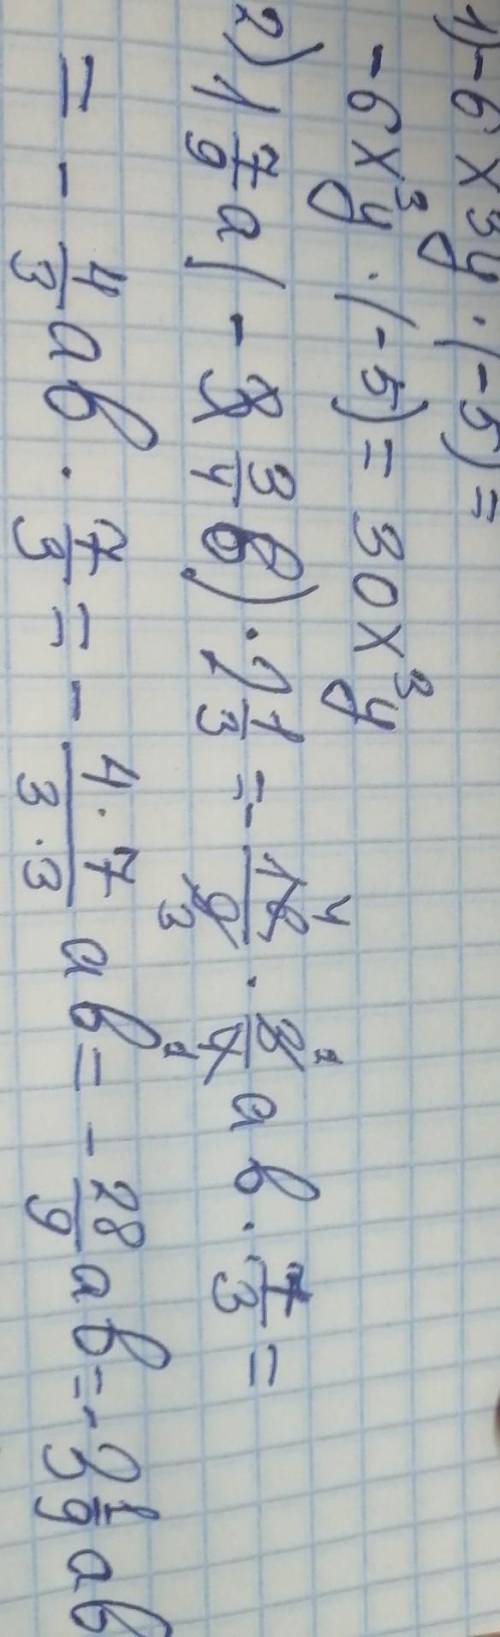 1) -6x³y · (-5) =
-6x³y · (-5) = 30x³y
2) 1 7/9 a (- 3/4 b) · 2 1/3 = - 16/9 · 3/4 ab · 7/3 =
= - 4/3 ab · 7/3 = - 4·7/3·3 ab = - 28/9 ab = -3 1/9 ab